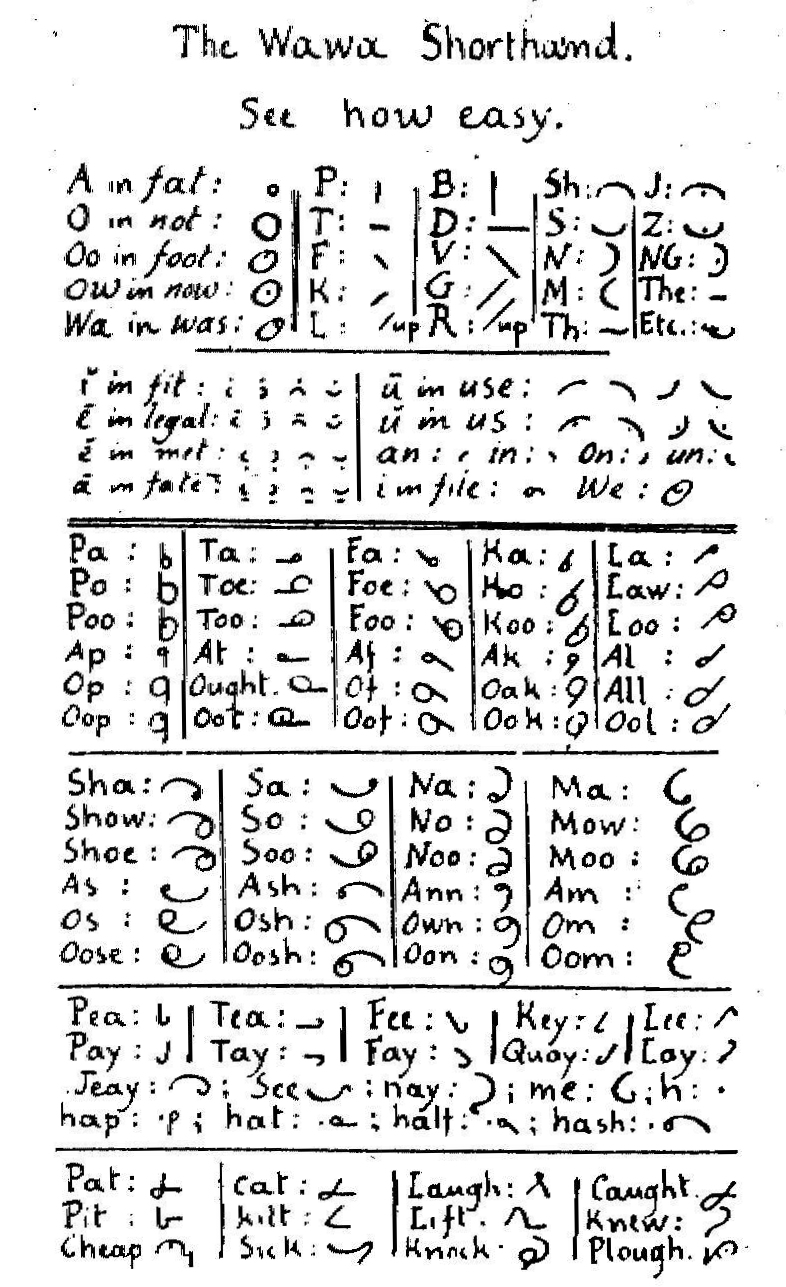 The Wawa Shorthand.
See how easy.
A in fat: P: B: Sh: J:
O in not: T: D: S: Z:
Oo in foot: F: V: N: NG:
OW in now: K: G: M: The:
Wa in was: L: up R: up Th: Etc.:
ĭ in fit: ū in use:
ē in legal: ŭ in us:
ĕ in met: an: in: On: un:
ā in fate: i in file: We:
Pa: Ta: Fa: Ka: La:
Po: Toe: Foe: Ko: Law:
Poo: Too: Foo: Koo: Loo:
Ap: At: Af: Ak: Al:
Op: Ought. Of: Oak: All:
Oop: Oot: Oof: Ook: Ool:
Sha: Sa: Na: Ma:
Show: So: No: Mow:
Shoe: Soo: Noo: Moo:
As: Ash: Ann: Am:
Os: Osh: Own: Om:
Oose: Oosh: Oon: Oom:
Pea: Tea: Fee: Key: Lee:
Pay: Tay: Fay: Quay: Lay:
Jeay: ; See ; nay: ; me: ; h:
hap: ; hat: ; half: ; hash:
Pat: Cat: Laugh: Caught.
Pit: Kilt: Lift. Knew:
Cheap Sick: Knock. Plough.